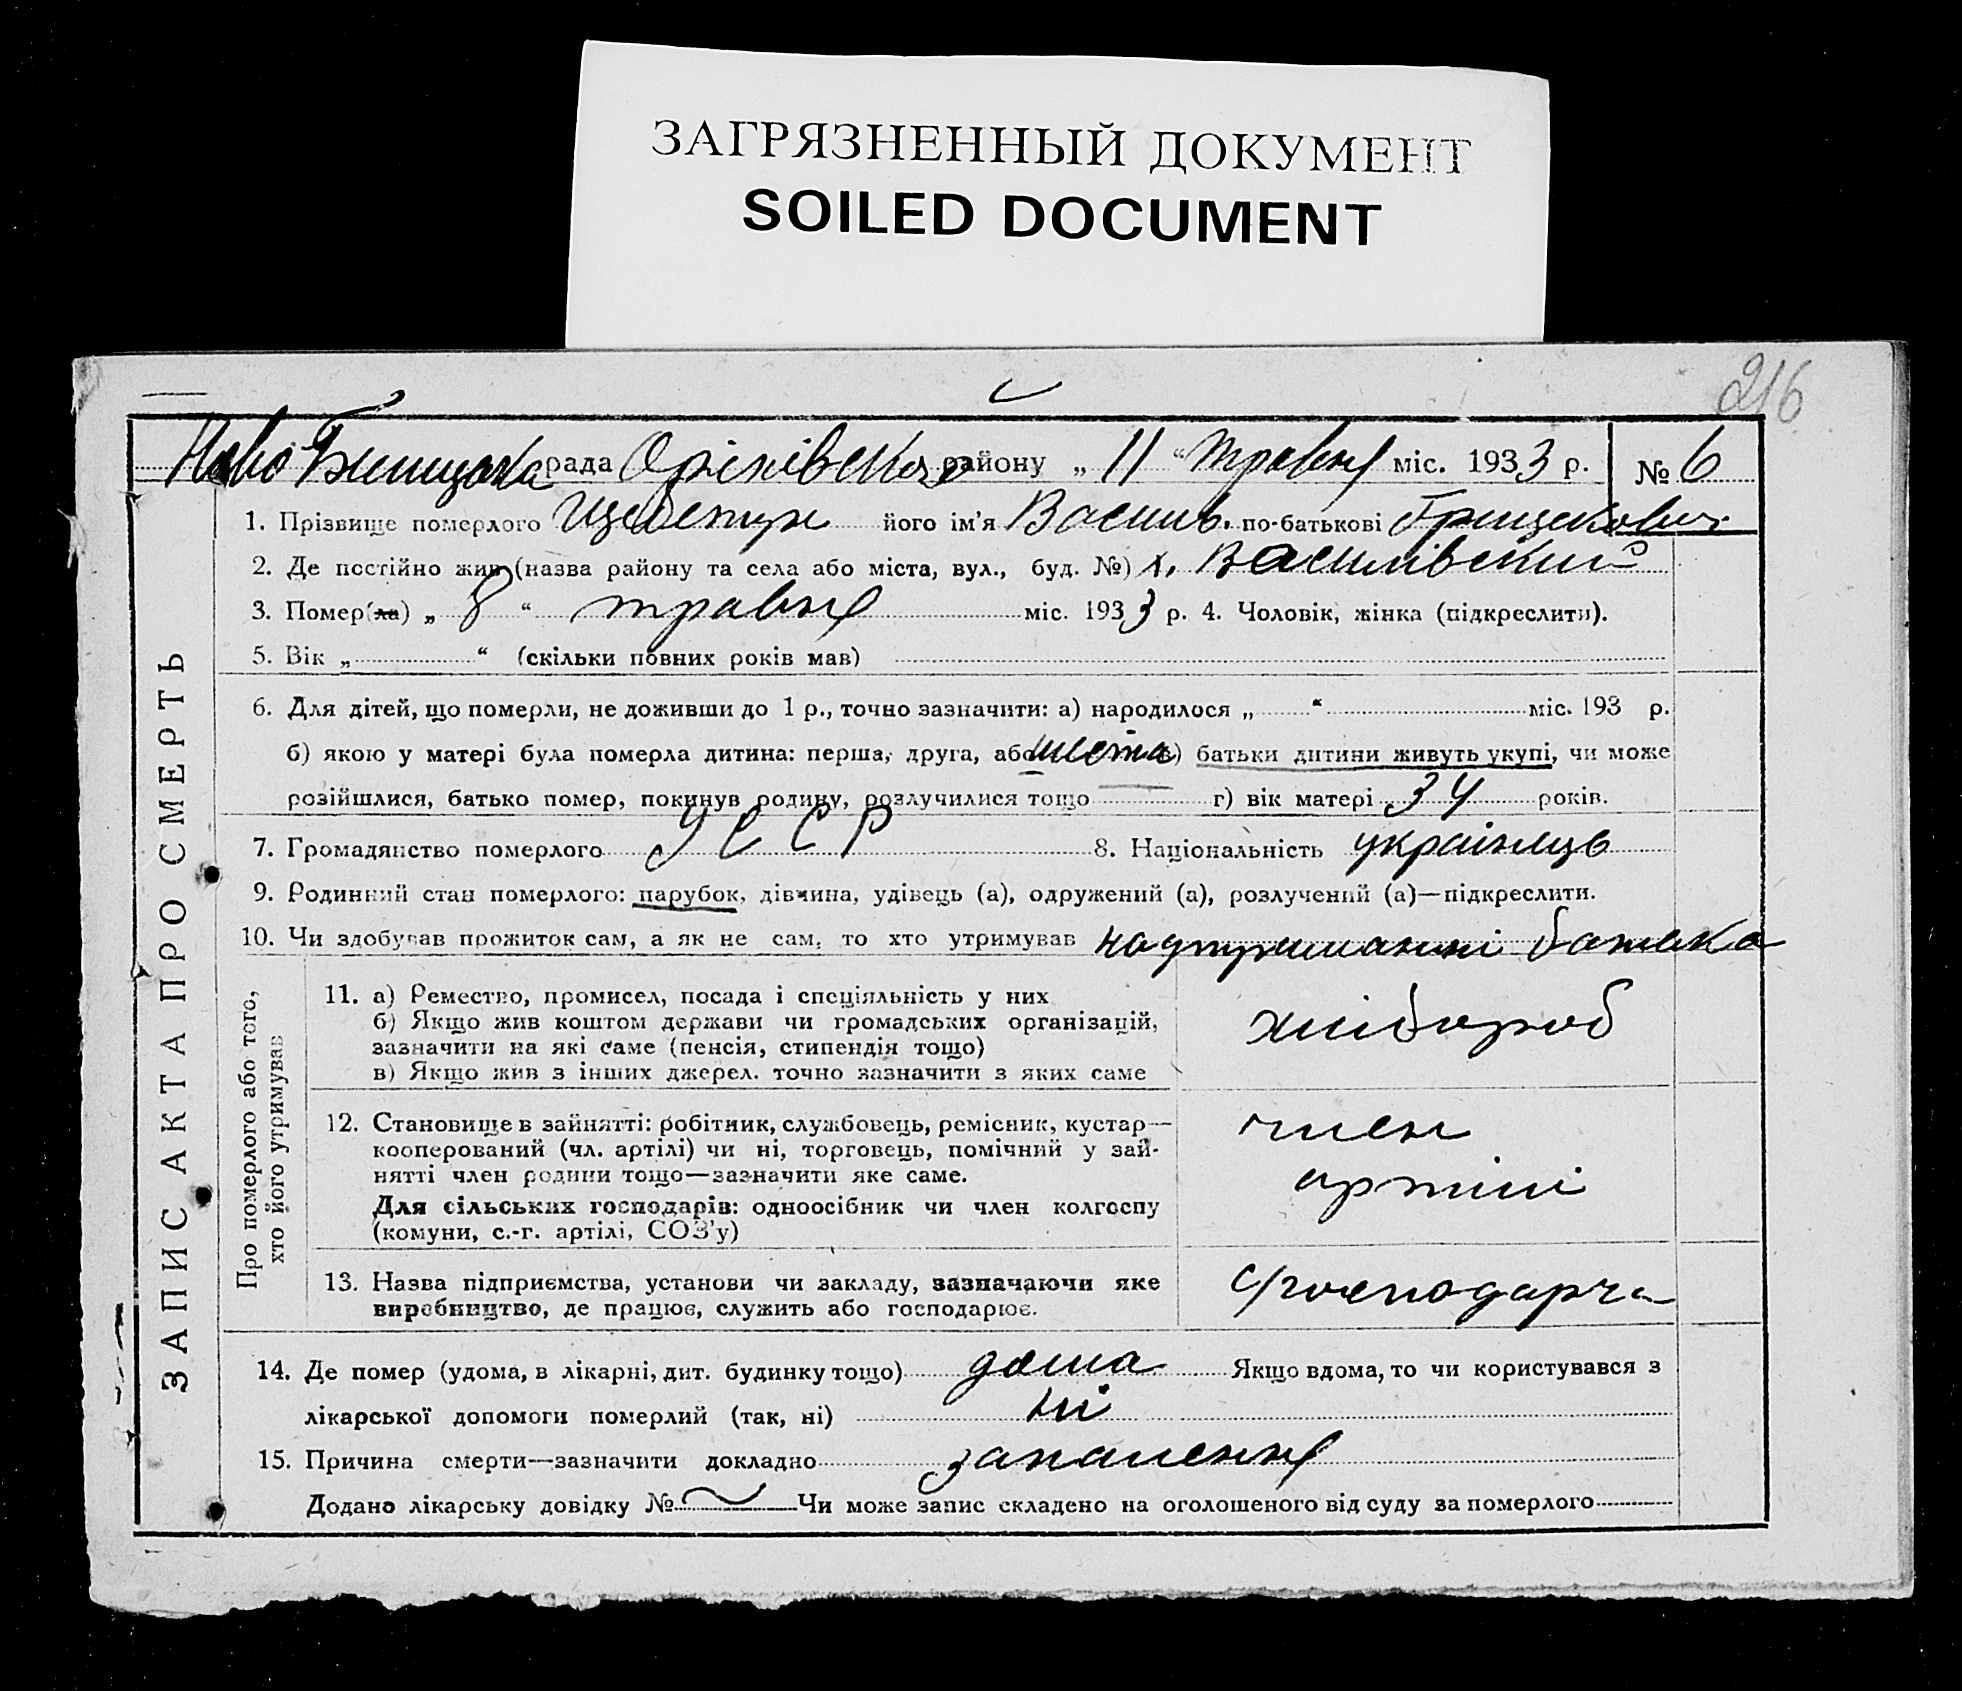 ЗАГРЯЗНЕННЫЙ ДОКУМЕНТ
SOILED DOCUMENT
216
рада Оріхівського району „ 11 “ травня міс. 1933 р. № 6
1. Прізвище померлого його ім'я Василь по-батькові
2. Де постійно жив (назва району та села або міста, вул., буд. №) х. Василівский
3. Помер(ла) „ 8 “ травня міс. 1933 р. 4. Чоловік, жінка (підкреслити).
5. Вік „ “ (скільки повних років мав)
6. Для дітей, що померли, не доживши до 1 р., точно зазначити: а) народилося „ “ міс. 193 р.
б) якою у матері була померла дитина: перша, друга, або шоста в) батьки дитини живуть укупі, чи може
розійшлися, батько помер, покинув родину, розлучилися тощо г) вік матері 34 років.
7. Громадянство померлого УССР 8. Національність українець
9. Родинний стан померлого: парубок, дівчина, удівець (а), одружений (а), розлучений (а)—підкреслити.
10. Чи здобував прожиток сам, а як не сам, то хто утримував на утриманні батька
ЗАПИС АКТА ПРО СМЕРТЬ
Про померлого або того,
хто його утримував
11. а) Ремество, промисел, посада і спеціяльність у них
б) Якщо жив коштом держави чи громадських організацій,
зазначити на які саме (пенсія, стипендія тощо)
в) Якщо жив з інших джерел. точно зазначити з яких саме
хлібороб
12. Становище в зайнятті: робітник, службовець, ремісник, кустар—
кооперований (чл. артілі) чи ні, торговець, помічний у зай-
нятті член родини тощо—зазначити яке саме.
Для сільських господарів: одноосібник чи член колгоспу
(комуни, с.-г. артілі, СОЗ'у)
член
артілі
13. Назва підприємства, установи чи закладу, зазначаючи яке
виробництво, де працює, служить або господарює.
с/господарча
14. Де помер (удома, в лікарні, дит. будинку тощо) дома Якщо вдома, то чи користувався з
лікарської допомоги померлий (так, ні) ні
15. Причина смерти—зазначити докладно запалення
Додано лікарську довідку № Чи може запис складено на оголошеного від суду за померлого